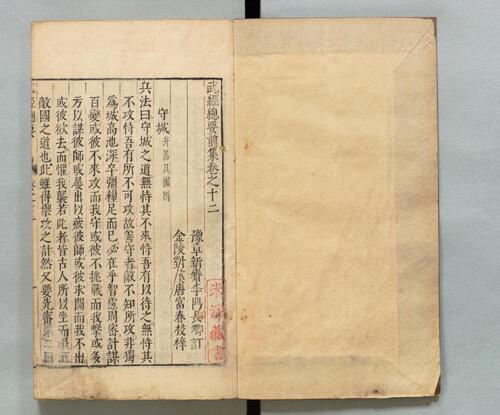 武經總要前集卷之十二
豫章新齋李門長卿訂
金陵對溪唐富春校梓
守城并器具圖附
兵法曰守城之道無恃其不來恃吾有以待之無恃其
不攻恃吾有所不可攻故善守者敵不知所攻非獨
爲城高池深卒彊糧足而已必在乎智慮周密計謀
百變或彼不來攻而我守或彼不挑戰而我擊或多
方以謀彼師或屢出以疲彼師或彼求鬭而我不出
或彼欲去而懼我襲若此者皆古人所以坐而
敵國之道也此雖得禦攻之計然又要先審